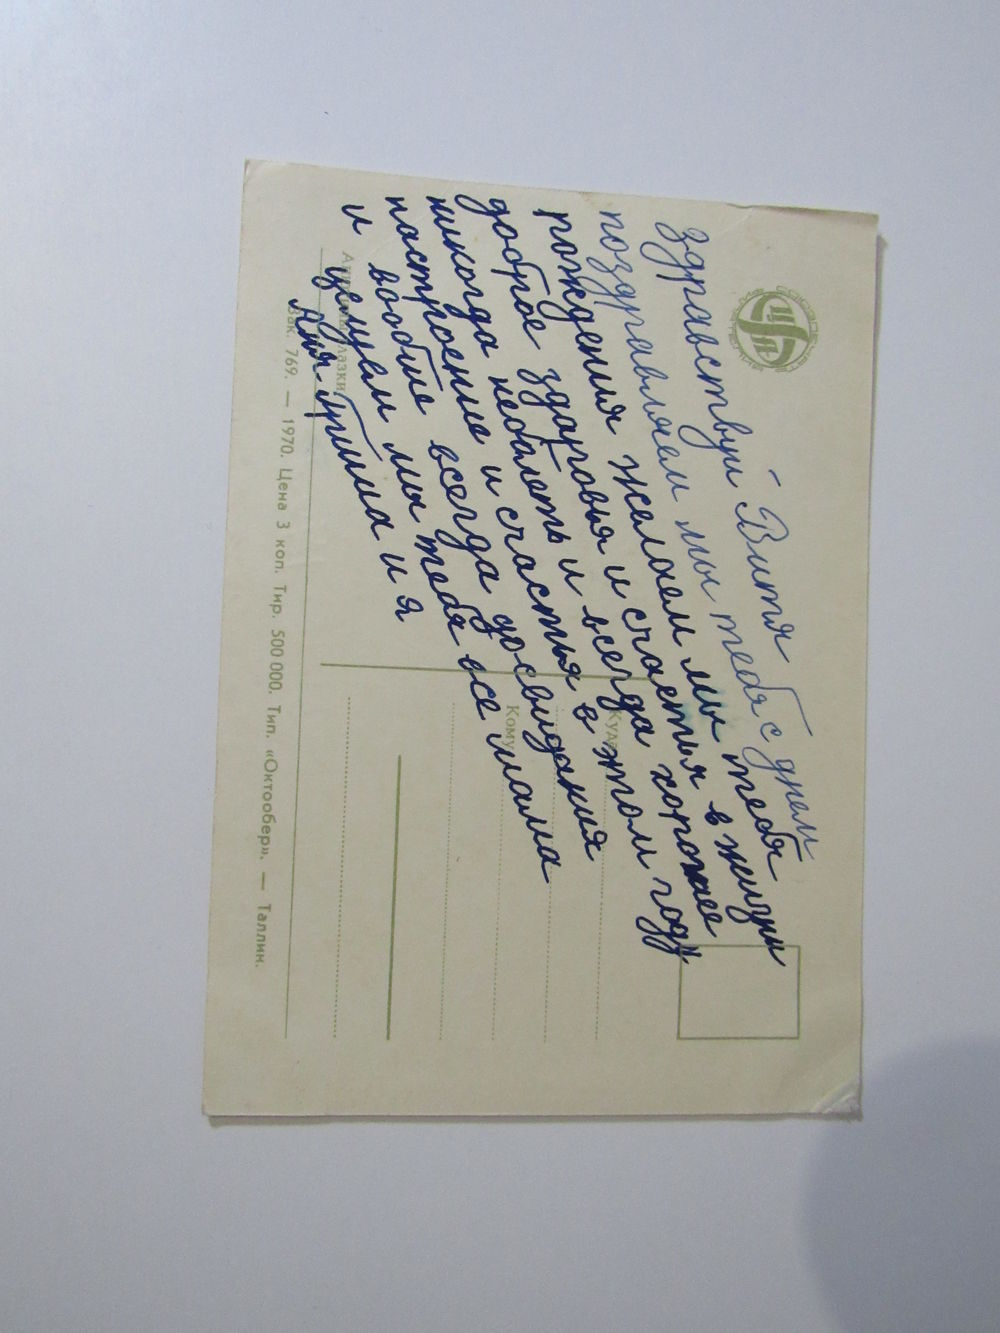 здравствуй Витя
поздравляем мы тебя с днем
рождения желаем мы тебя
доброе здаровья и счастья в жизни
никогда неболеть и всегда хорошее
настроение и счастья в этом году
и вообше всегда досвидания
целуем мы тебя все мама
Аня. Гриша и я
Куда
Кому
Зак. 769. — 1970. Цена 3 коп. Тир. 500 000. Тип. «Октообер». — Таллин.